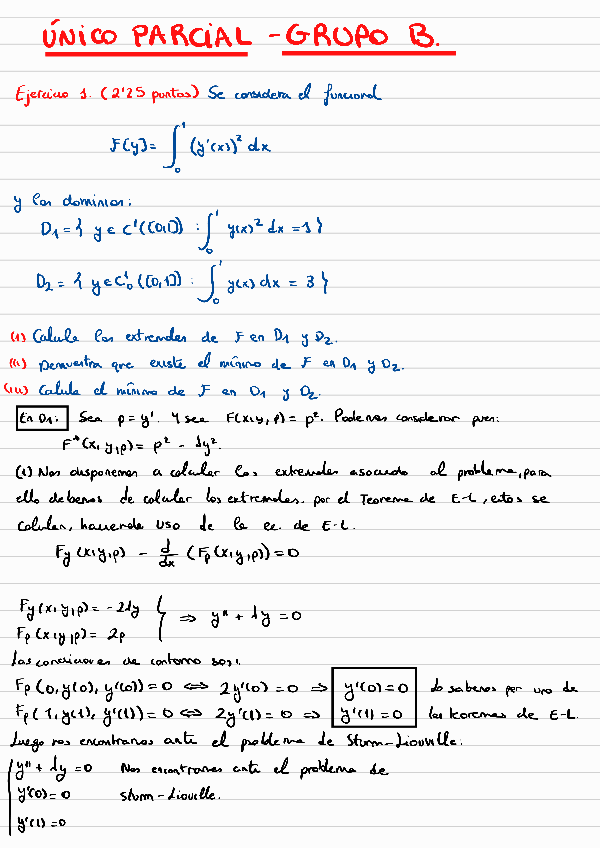 ÚNICO PARCIAL - GRUPO B.
Ejercicio 1. (2'25 puntos) Se considera el funcional
F[y] = ∫₀¹ (y'(x))² dx
y los dominios:
D₁ = { y ∈ C¹([0,1]) : ∫₀¹ y(x)² dx = 1 }
D₂ = { y ∈ C¹₀([0,1]) : ∫₀¹ y(x) dx = 3 }
(i) Calcule los extremales de F en D₁ y D₂.
(ii) Demuestra que existe el mínimo de F en D₁ y D₂.
(iii) Calcula el mínimo de F en D₁ y D₂.
En D₁: Sea p = y'. Y sea F(x,y,p) = p². Podemos considerar pues:
F*(x,y,p) = p² - λy².
(i) Nos disponemos a calcular los extremales asociado al problema, para
ello debemos de calcular los extremales. por el Teorema de E-L, estos se
calculan, haciendo uso de la ec. de E-L.
Fy (x,y,p) - d/dx (Fp(x,y,p)) = 0
Fy(x,y,p) = -2λy
Fp(x,y,p) = 2p } ⇒ y'' + λy = 0
Las condiciones de contorno son:
Fp(0,y(0),y'(0)) = 0 ⇔ 2y'(0) = 0 ⇒ y'(0) = 0 Lo sabemos por uno de
Fp(1,y(1),y'(1)) = 0 ⇔ 2y'(1) = 0 ⇒ y'(1) = 0 los teoremas de E-L.
Luego nos encontramos ante el problema de Sturm-Liouville:
y'' + λy = 0 Nos encontramos ante el problema de
y'(0) = 0 Sturm-Liouville.
y'(1) = 0